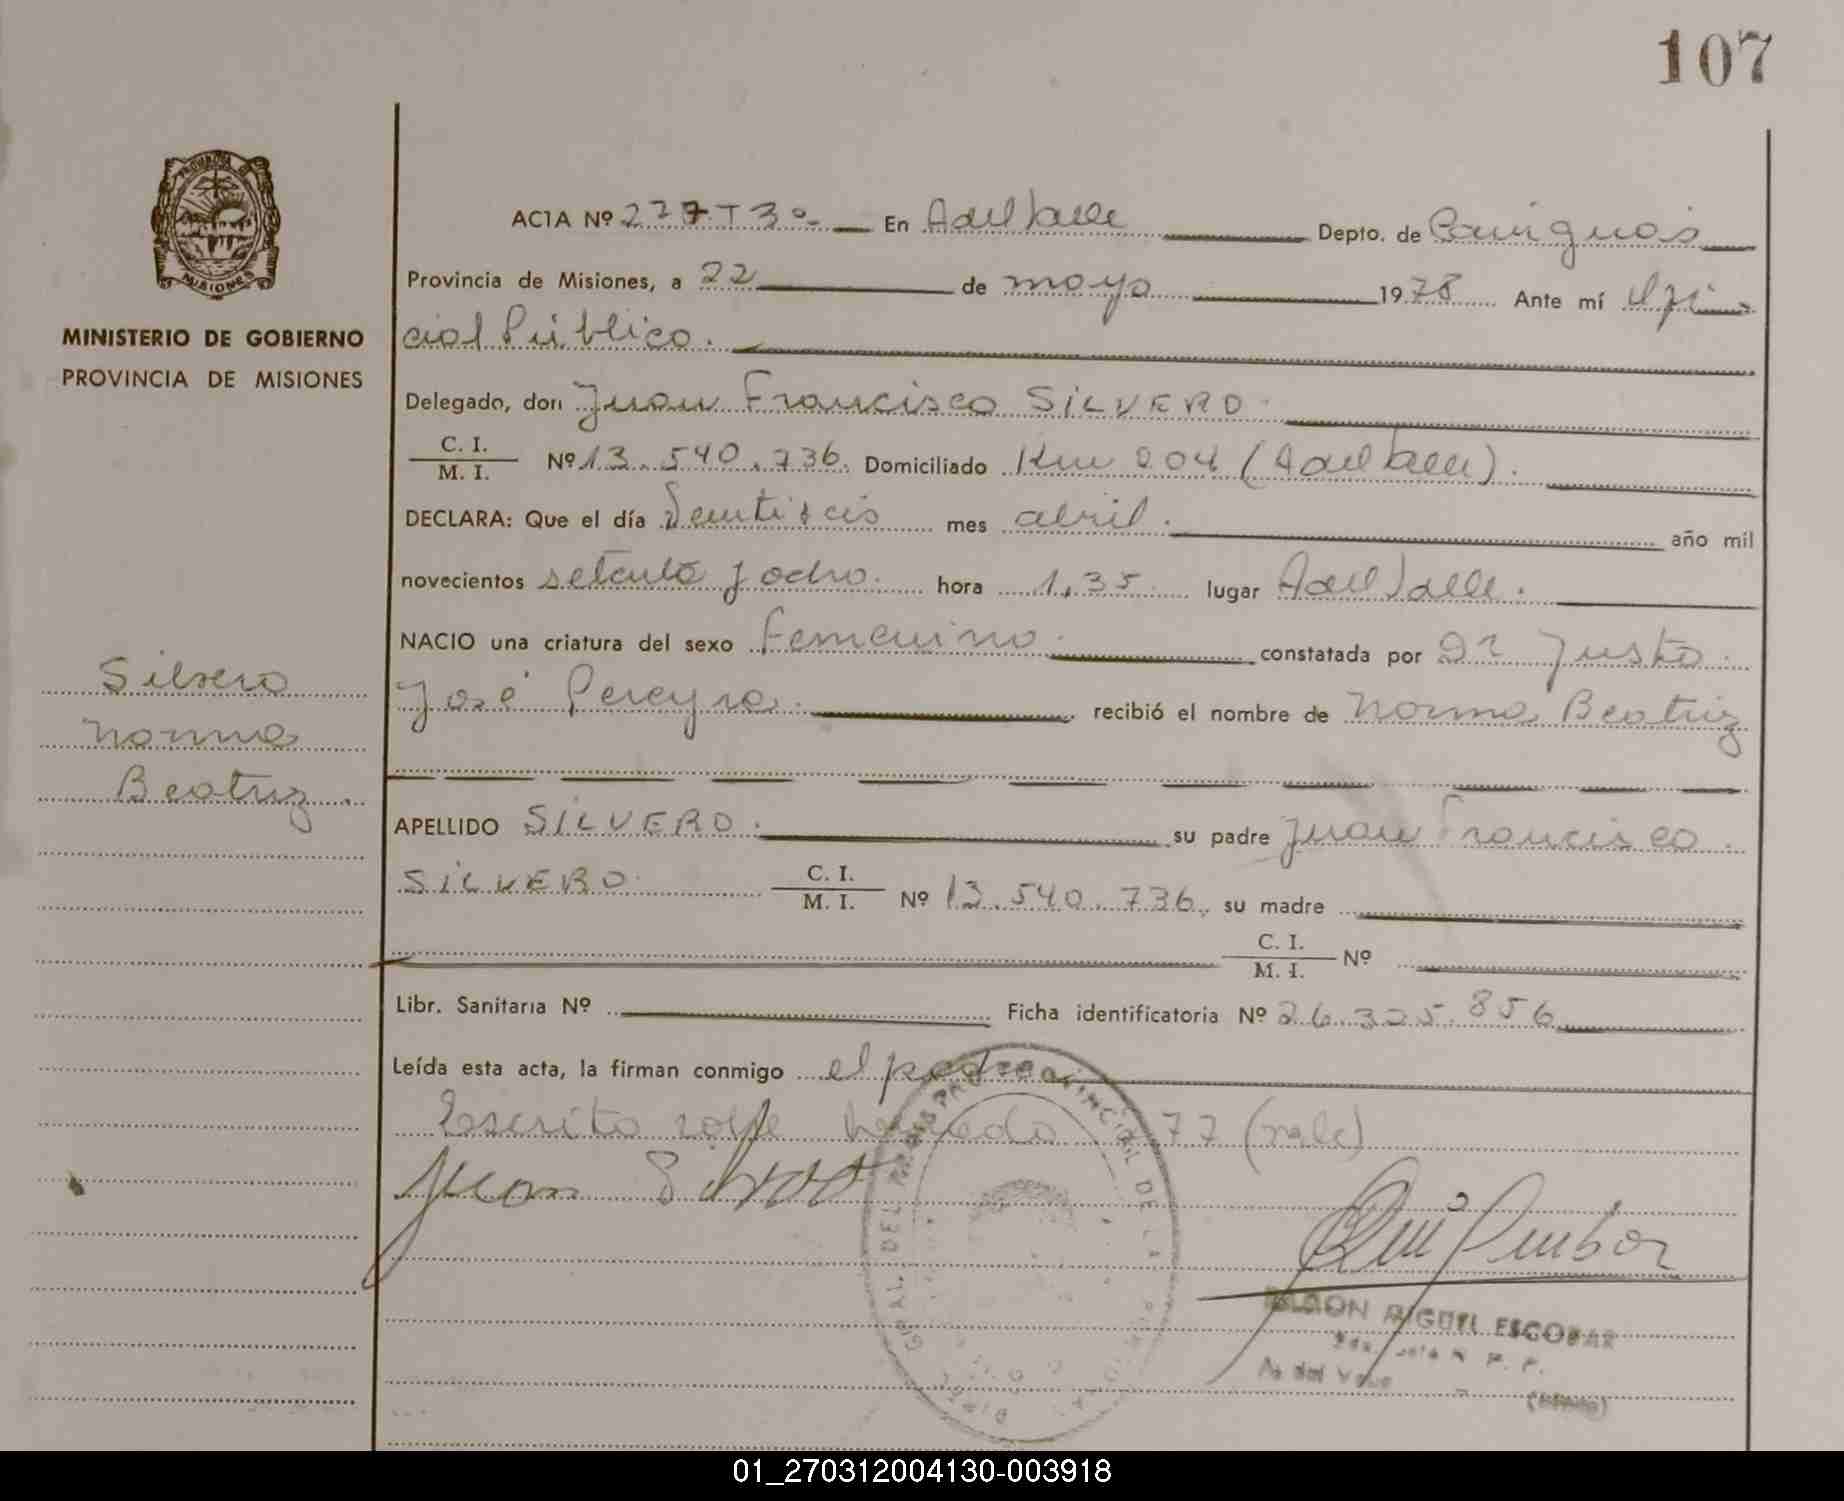 107
PROVINCIA DE
MISIONES
MINISTERIO DE GOBIERNO
PROVINCIA DE MISIONES
ACTA Nº 277 T 3º En A del Valle Depto. de Cainguás
Provincia de Misiones, a 22 de mayo 1978 Ante mí Ofi
cial Público.
Delegado, don Juan Francisco SILVERO
C. I.
M. I. Nº 13.540.736. Domiciliado Km 204 (A del Valle).
DECLARA: Que el día Veintiseis mes abril. año mil
novecientos setenta y ocho. hora 1,35 lugar A del Valle.
NACIO una criatura del sexo Femenino constatada por Dr Justo
José Pereyra. recibió el nombre de Norma Beatriz
Silvero
Norma
Beatriz.
APELLIDO SILVERO. su padre Juan Francisco
SILVERO C. I.
M. I. Nº 13.540.736, su madre
C. I.
M. I. Nº
Libr. Sanitaria Nº Ficha identificatoria Nº 26.325.856
Leída esta acta, la firman conmigo el padre
Escrito sobre 77 (vale)
Juan Silvero
PROVINCIAL DE LA
RAMON MIGUEL ESCOBAR
01_270312004130-003918